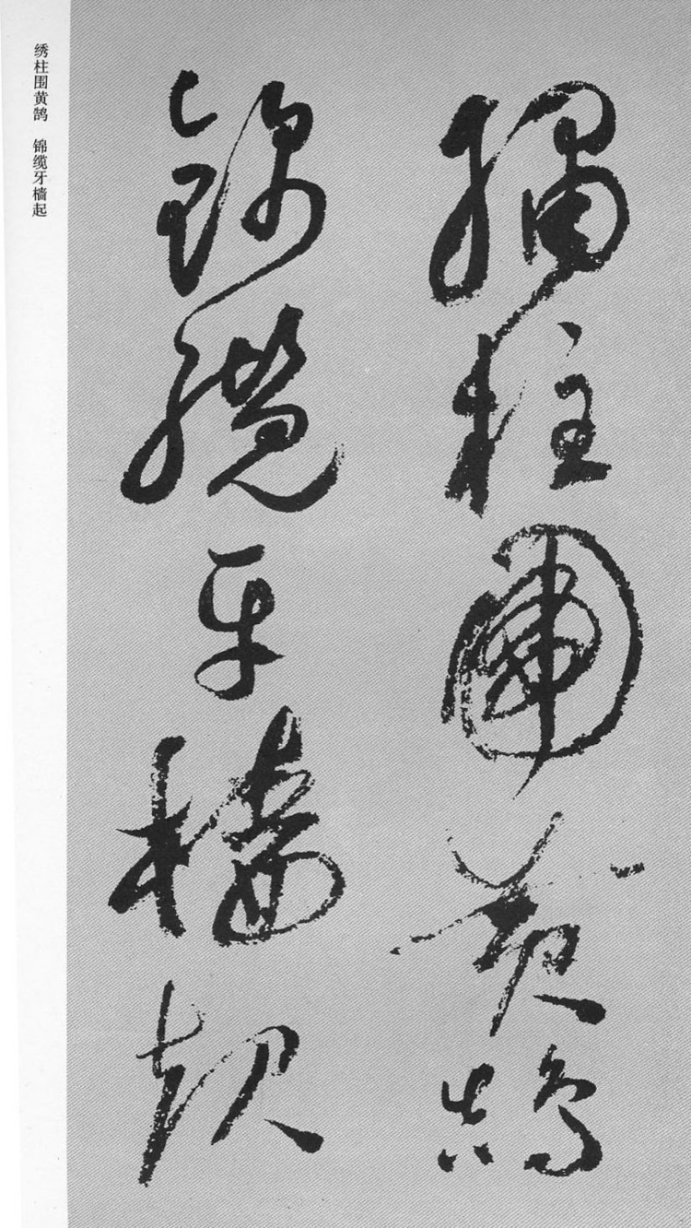 繡柱圍黃鵠
錦纜牙檣起
绣柱围黄鹄 锦缆牙樯起